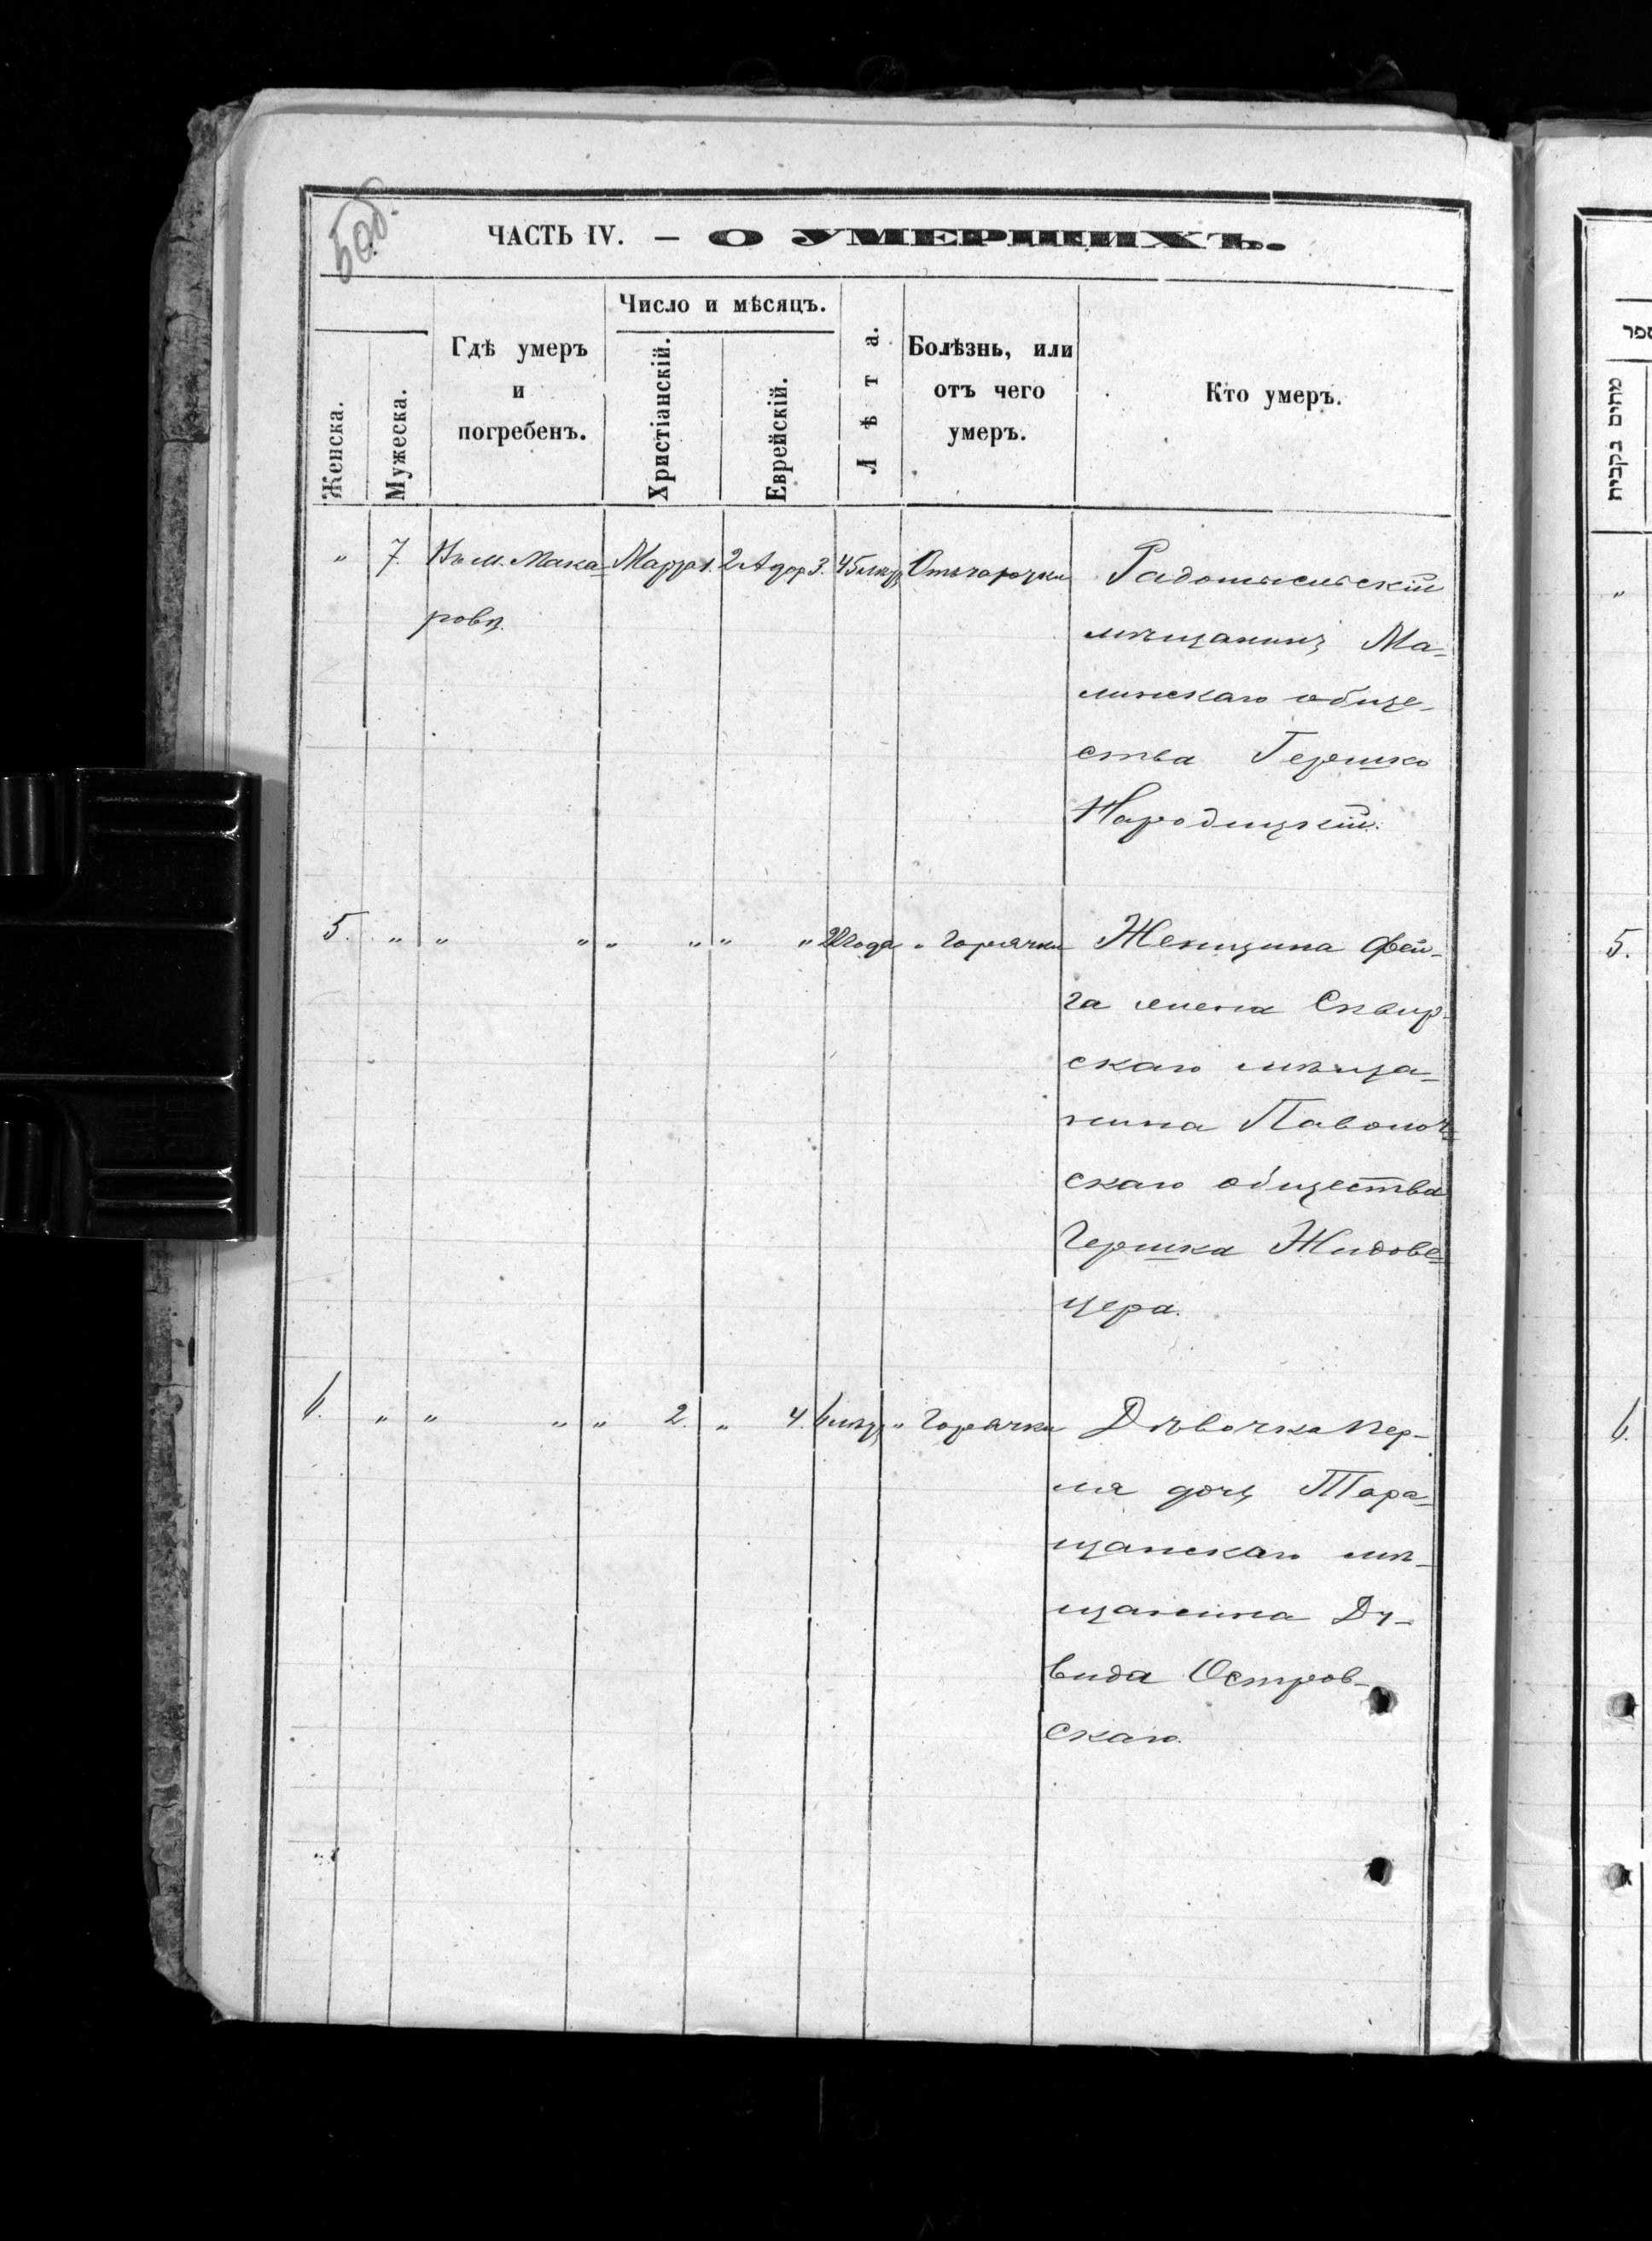 50об.
ЧАСТЬ IV. — О УМЕРШИХЪ.
Женска.
Мужеска.
Гдѣ умеръ
и
погребенъ.
Число и мѣсяцъ.
Христіанскій.
Еврейскій.
Лѣта.
Болѣзнь, или
отъ чего
умеръ.
Кто умеръ.
„ 7. Въ м. Мака- Марта 1. 2 Адор 3. 45 лѣтъ Отъ горячки Радомысльскій
ровѣ. мѣщанинъ Ма-
линскаго обще-
ства Гершко
Народицкій.
5. „ „ „ „ „ „ „ 22 года „ горячки Женщина Фей-
га жена Сквир-
скаго мѣща-
нина Паволоч-
скаго общества
Гершка Жидове-
цера.
6. „ „ „ „ 2. „ 4. 6 лѣтъ „ горячки Дѣвочка Пер-
ля дочь Тара-
щанскаго мѣ-
щанина Ду-
вида Остров-
скаго.
ספר
מתים
נקבות
„
5.
6.